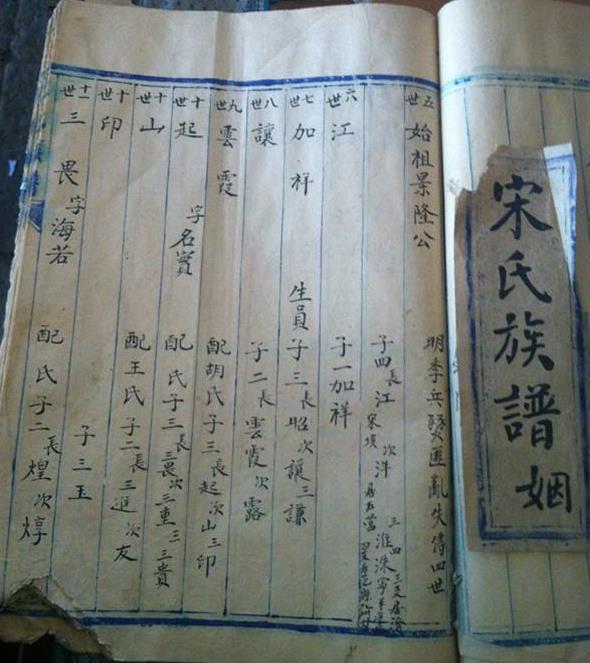 宋氏族譜 姻
五世 始祖景隆公 明季兵燹匪亂失傳四世
子四 長江 次洋 三淮 四洙
六世 江 子一加祥
七世 加祥 生員 子三 長昭 次讓 三謙
八世 讓 子二 長雲霞 次露
九世 雲霞 配胡氏 子三 長起 次山 三印
十世 起 字名實 配 氏 子三 長三畏 次三重 三三貴
十世 山 配王氏 子二 長三進 次友
十世 印 子三玉
十一世 三畏 字海若 配 氏 子二 長煌 次焞